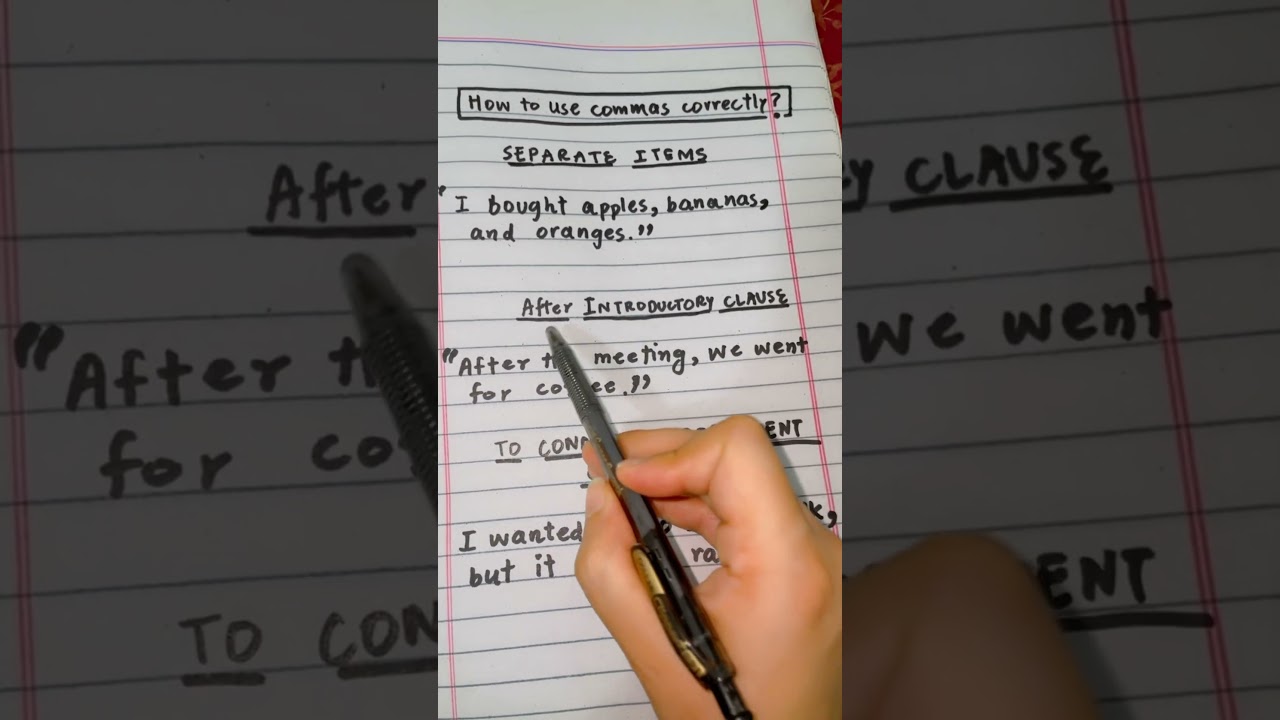 How to use commas correctly?
SEPARATE ITEMS
"I bought apples, bananas,
and oranges."
After INTRODUCTORY CLAUSE
"After meeting, we went
for
TO
I wanted
but it